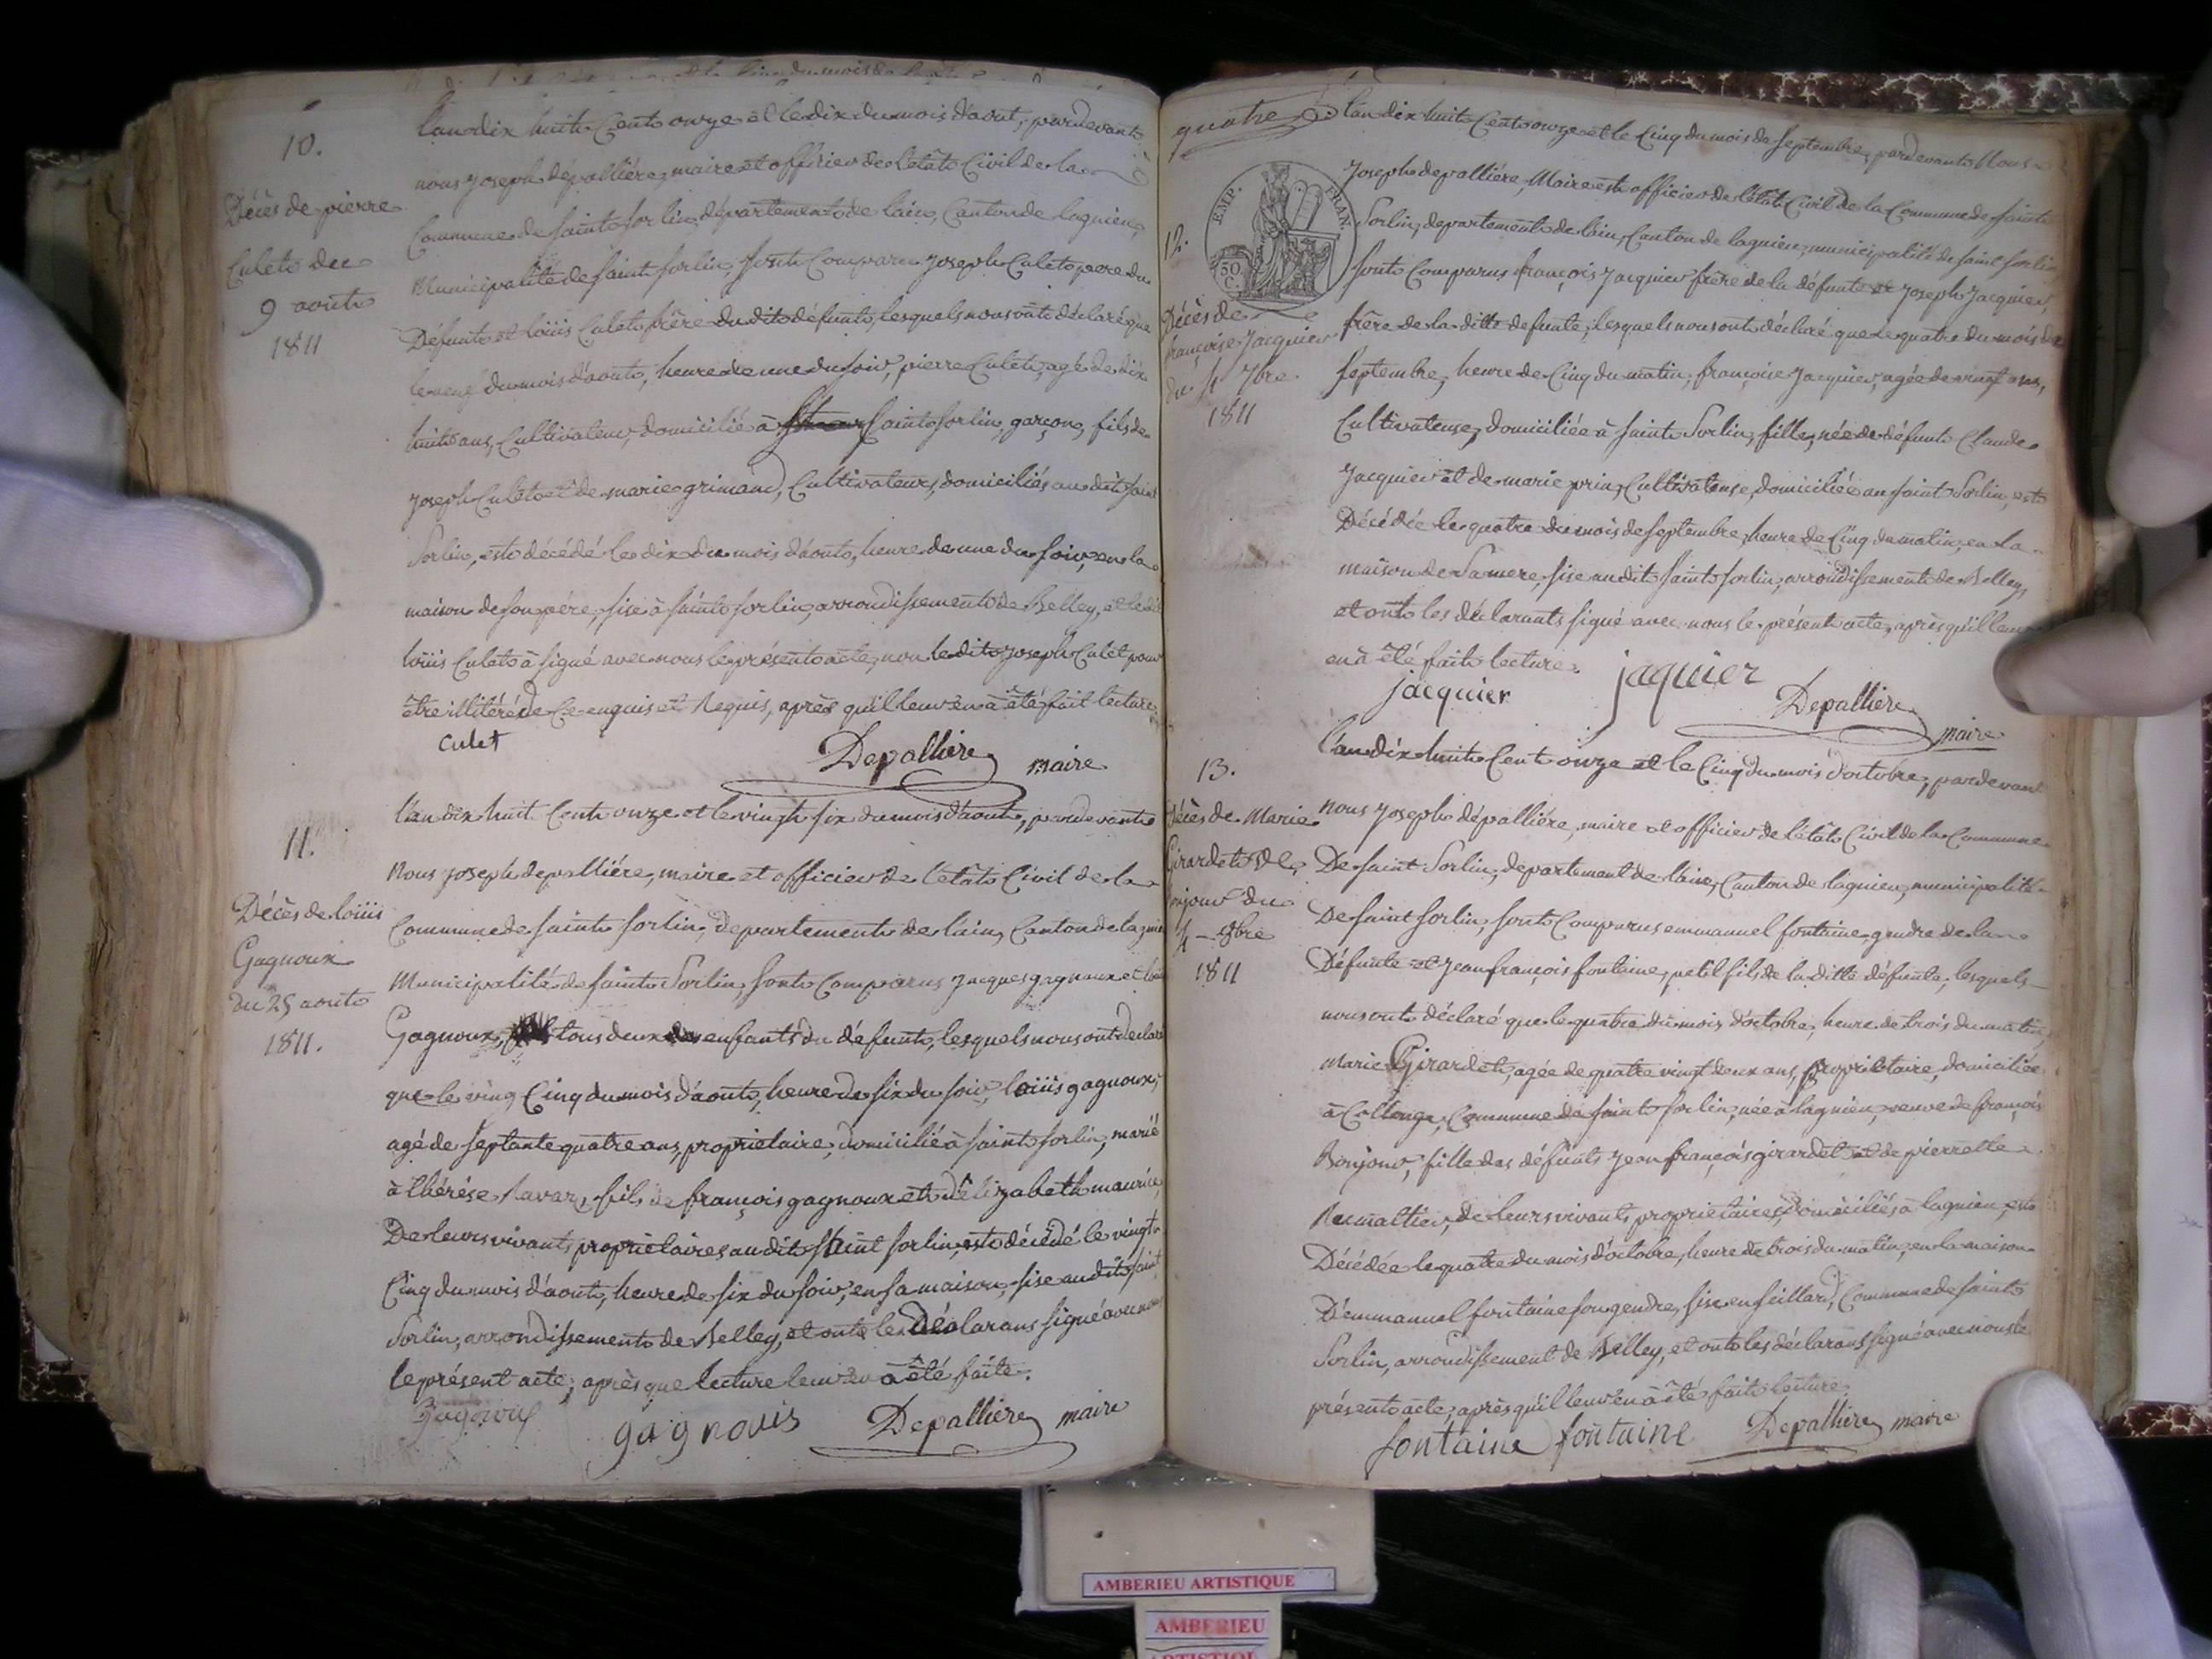 10.
Décès de pierre
Culet du
9 août
1811
l'an dix huit Cent onze et le dix du mois d'aout, pardevant
nous joseph dépalliére, maire et officier de l'état Civil de la
Commune de saint sorlin, département de l'ain, Canton de lagnieu,
Municipalité de saint sorlin, sont Comparu joseph Culet pere du
Défunt et loüis Culet frère du dit défunt, lesquels nous ont déclaré que
le neuf du mois d'aout, heure de une du soir, pierre Culet, agé de dix
huit ans, Cultivateur, domicilié à saint sorlin, garçon, fils de
joseph Culet et de marie grimand, Cultivateurs, domiciliés au dit saint
Sorlin, est décédé le dix du mois d'aout, heure de une du soir, en la
maison de son pére, sise à saint sorlin, arrondissement de Belley, et le dit
loüis Culet à signé avec nous le présent acte, non le dit joseph Culet pour
être illitéré de Ce enquis et Requis, après qu'il leur en à été fait lecture
Culet
Depalliere maire
11.
Décès de loüis
Gagnoux
du 25 aout
1811.
l'an dix huit Cent onze et le vingt six du mois d'aout, pardevant
Nous joseph depalliére, maire et officier de l'état Civil de la
Commune de saint sorlin, departement de l'ain, Canton de lagnieu
Municipalité de saint Sorlin, sont Comparus jacques gagnoux et loüis
Gagnoux, tous deux enfants du défunt, lesquels nous ont declaré
que le ving Cinq du mois d'aout, heure de six du soir, loüis gagnoux,
agé de septante quatre ans, proprietaire, domicilié à saint sorlin, marié
à thérése Navar, fils de françois gagnoux et d'élizabeth maurice,
De leurs vivants proprietaires au dit saint sorlin, est décédé le vingt
Cinq du mois d'aout, heure de six du soir, en sa maison, sise au dit saint
Sorlin, arrondissement de Belley, et ont les Déclarans signé avec nous
le présent acte, après que lecture leur en à été faite.
gagnoux gagnouis Depalliere maire
quatre
EMP. FRAN.
50 C.
12.
Décès de
françoise Jacquier
du 4 7bre
1811
l'an dix huit Cent onze et le Cinq du mois de septembre, pardevant Nous
Joseph depalliére, Maire et officier de l'état Civil de la Commune de saint
Sorlin, departement de l'ain, Canton de lagnieu, municipalité de saint sorlin
sont Comparus françois Jacquier frère de la défunte et joseph Jacquier,
frère de la ditte defunte, lesquels nous ont déclaré que le quatre du mois de
septembre, heure de Cinq du matin, françoise Jacquier, agée de vingt ans,
Cultivateuse, domiciliée à saint Sorlin, fille, née de défunt Claude
Jacquier et de marie prin, Cultivateuse, domiciliée au saint Sorlin, est
Décédée le quatre du mois de septembre, heure de Cinq du matin, en la
maison de Sa mere, sise au dit saint sorlin, arrondissement de Belley,
et ont les déclarants signé avec nous le présent acte, après qu'il leur
en à été fait lecture.
jacquier jaquier Depalliere maire
13.
Décès de Marie
Girardet de
Bonjour du
4 - 8bre
1811
l'an dix huit Cent onze et le Cinq du mois d'octobre, pardevant
Nous joseph dépalliére, maire et officier de l'état Civil de la Commune
De saint Sorlin, departement de l'ain, Canton de lagnieu, municipalité
De saint sorlin, sont Comparus emmanuel fontaine gendre de la
Défunte et jean françois fontaine, petit fils de la ditte défunte, lesquels
nous ont déclaré que le quatre du mois d'octobre, heure de trois du matin,
Marie Girardet, agée de quatre vingt deux ans, proprietaire, domiciliée
à Collonge, Commune de saint sorlin, née à lagnieu, veuve de françois
Bonjour, fille des défunts jean françois girardet et de pierrette
de leurs vivants proprietaires, domiciliés à lagnieu, est
Décédée le quatre du mois d'octobre, heure de trois du matin, en la maison
D'emmanuel fontaine son gendre, sise en seillard, Commune de saint
Sorlin, arrondissement de Belley, et ont les déclarans signé avec nous le
présent acte, après qu'il leur en à été fait lecture.
fontaine fontaine Depalliere maire
AMBERIEU ARTISTIQUE
AMBERIEU
ARTISTIQUE